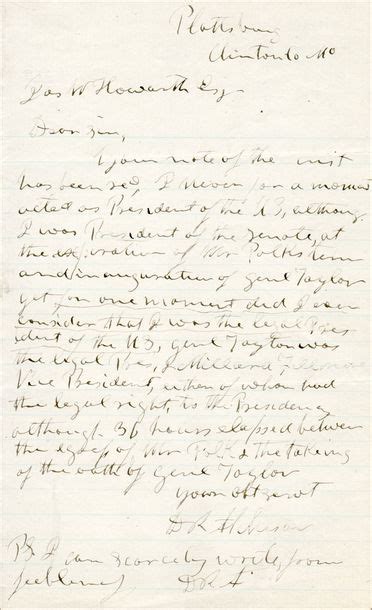 Plattsburg
Clinton Co Mo
Jas W Howarth Esq
Dear Sir,
Your note of the inst
has been recd, I never for a moment
acted as President of the US, although
I was President of the Senate, at
the expiration of Mr Polks term
and inauguration of Genl Taylor
yet for one moment did I ever
consider that I was the legal Pres
ident of the US, Genl Taylor was
the legal Pres, & Millard Fillmore
Vice President, either of whom had
the legal right, to the Presidency
although 36 hours elapsed between
the of Mr Polk & the taking
of the oath of Genl Taylor
Your obt servt
D R Atchison
PS I can scarcely write from
feebleness D R A